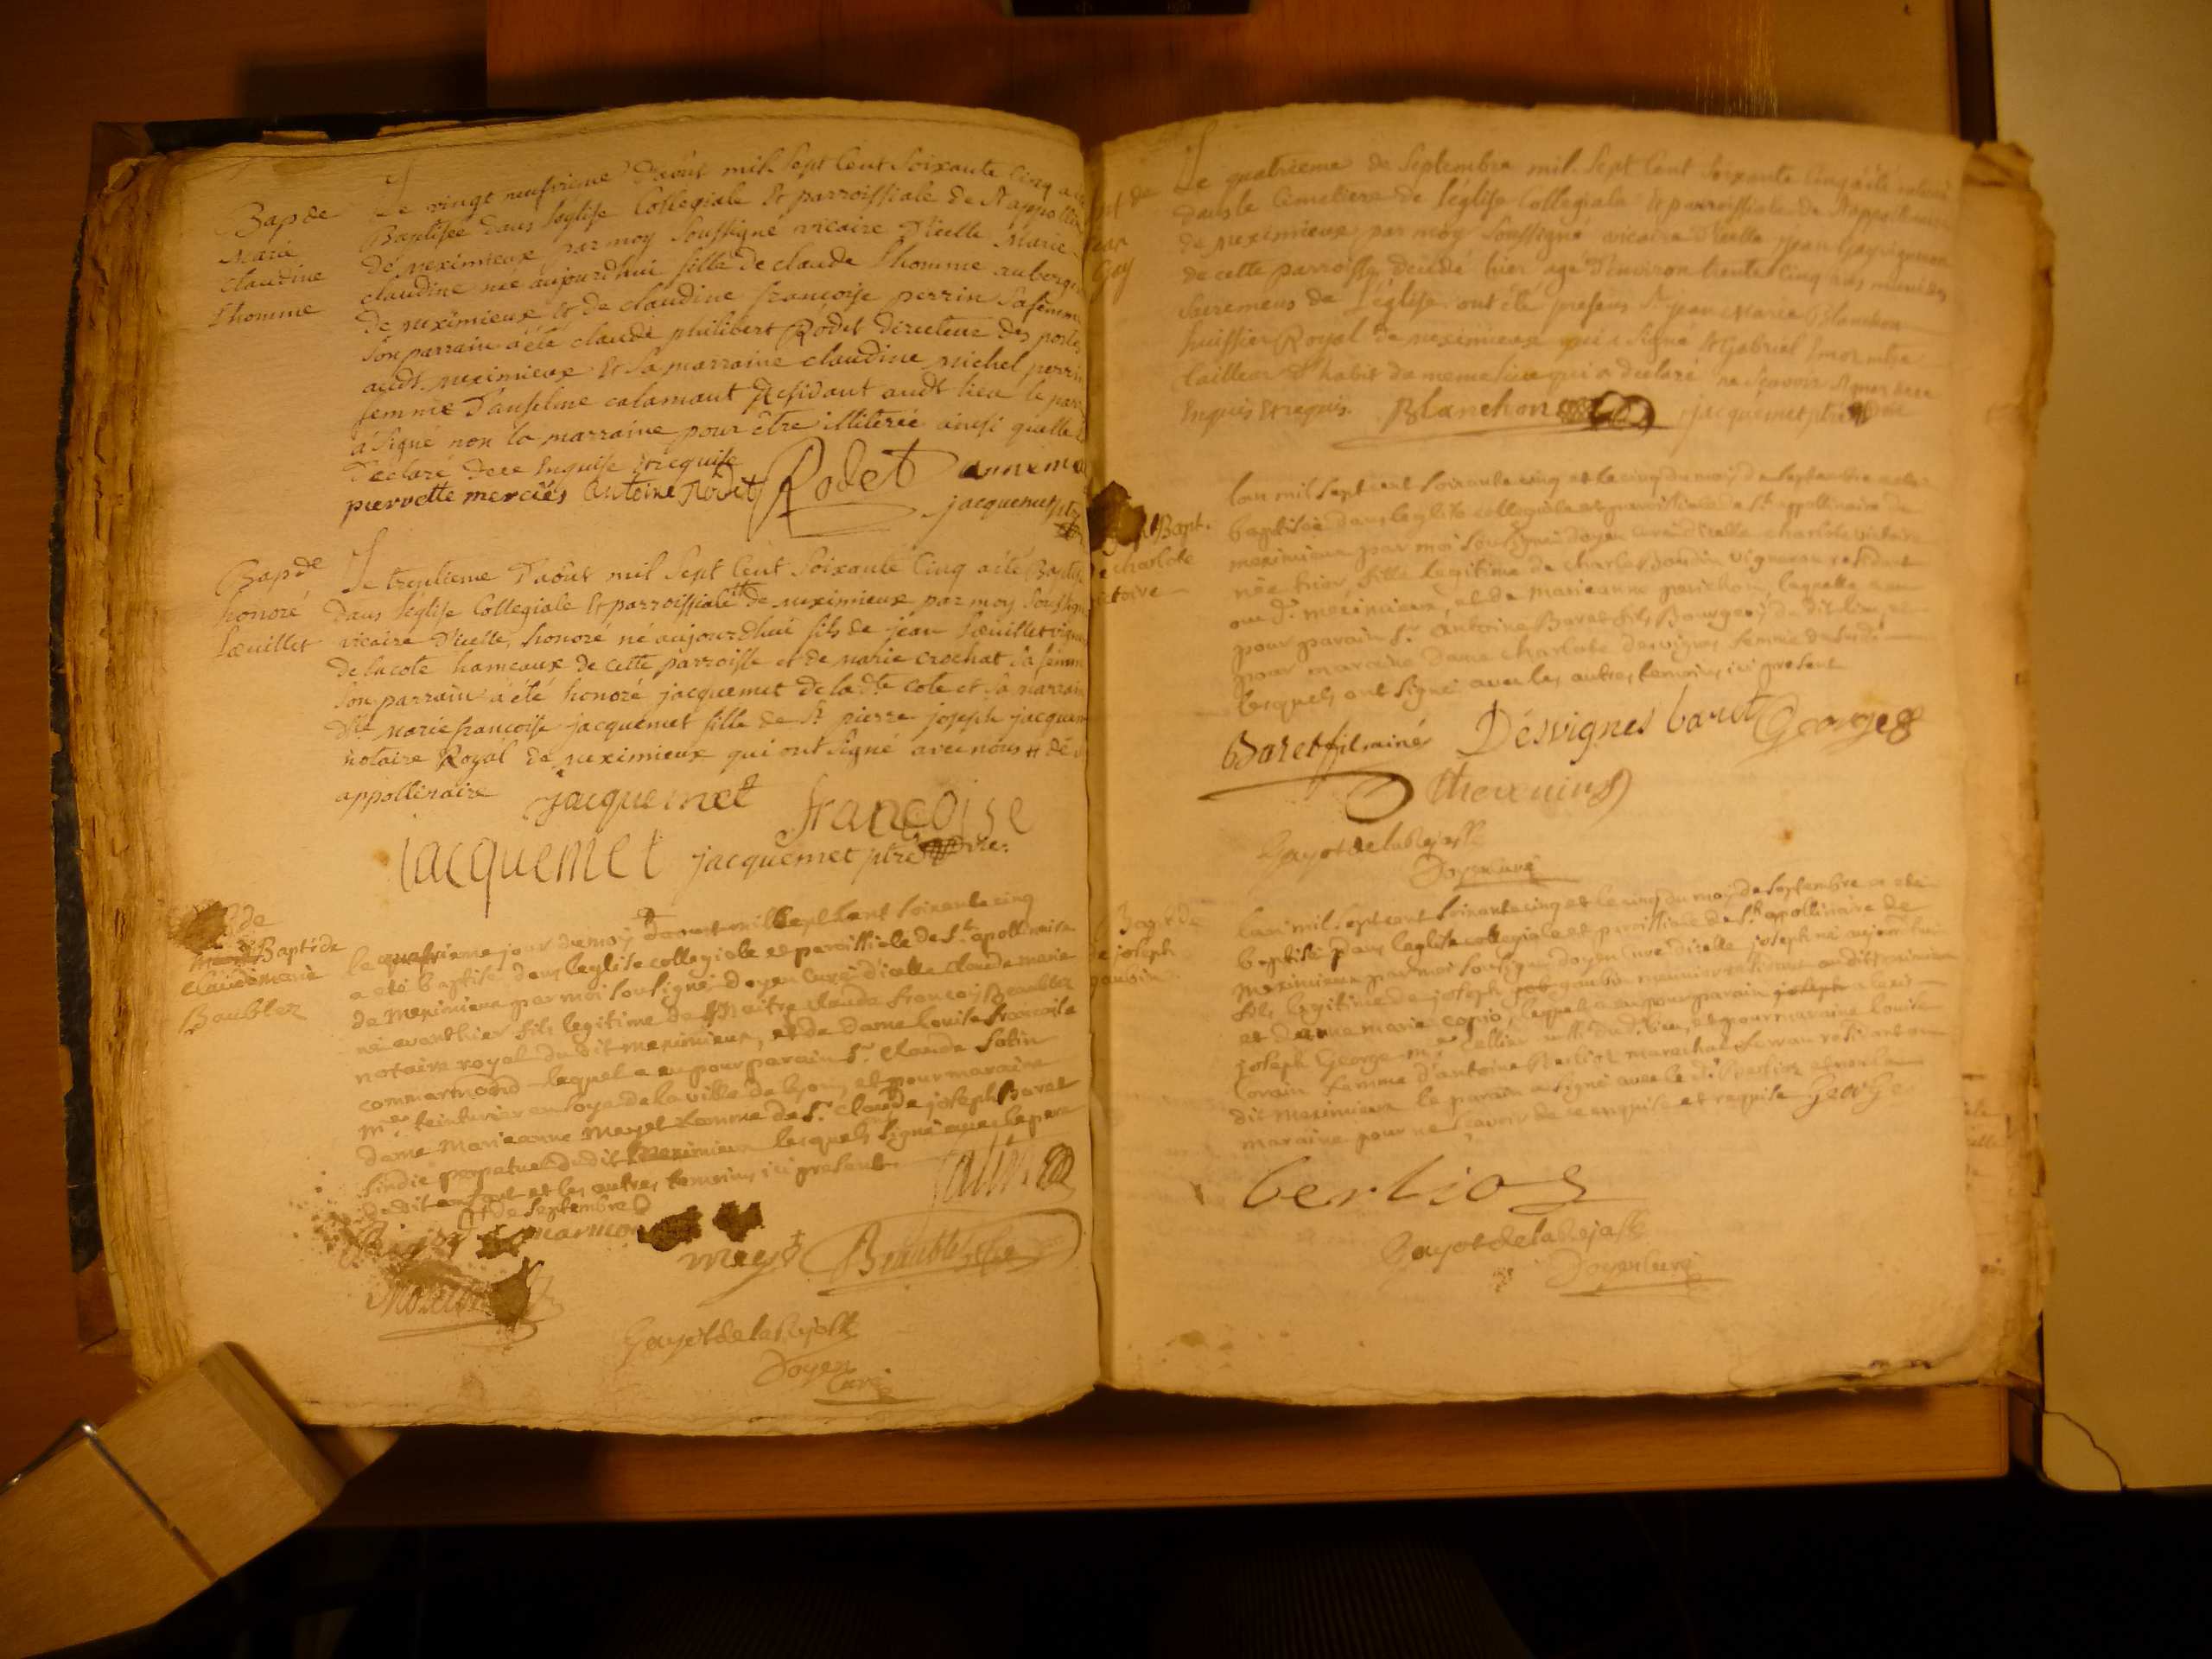 Bap de
Marie
claudine
Lhomme
Le vingt neufvieme d'aout mil Sept Cent Soixante Cinq a
Baptisée dans l'eglise Collegiale Et parroissiale de St appolli
de meximieux par moy Soussigné vicaire d'icelle Marie
claudine née aujourdhui fille de claude Lhomme auberg
de meximieux Et de claudine françoise perrin Sa femme
Son parrain a été claude philibert Rodet directeur des postes
audt. meximieux Et Sa marraine claudine michel perrin
femme d'anselme calamant Residant audt lieu le par
a Signé non la marraine pour être illiterée ainsi quelle
declaré de ce Enquise Et requise
pierrette mercies antoine Rodet Rodet anne
jacquemet ptre
Bap de
honoré
Loeuillet
Le trentieme d'aout mil Sept Cent Soixante Cinq a été Baptisé
dans l'eglise Collegiale Et parroissiale # de meximieux par moy Soussigné
vicaire d'icelle, honoré né aujourdhui fils de jean Loeuillet vigneron
de la cote hameaux de cette parroisse et de marie crochat Sa femme
Son parrain a été honoré jacquemet de la dte cote et Sa marraine
dlle marie françoise jacquemet fille de Sr pierre joseph jacquem
notaire Royal de meximieux qui ont Signé avec nous # de
appollinaire jacquemet françoise
jacquemet jacquemet ptre vire.
de
Bapt de
Claude marie
Baublez
le quatrieme jour du moy mille Sept Cent Soixante cinq
a eté baptisé dans leglise collegiale et paroissiale de St. apollinaire
de Meximieux par moi Sousigné doyen Curé d'icelle claude marie
né avant hier fils legitime de Maitre claude François Baublez
notaire royal du dit meximieux, et de dame Louise Francoise
commarmond lequel a eu pour parain Sr. claude Satin
Me. teinturier en Soye de la ville de lyon, et pour maraine
dame Marieanne Mayet femme de Sr. claude joseph Baret
Sindic perpetuel du dit Meximieux lesquels Signé avec le pere
du dit enfant et les autres temoins ici present. Satin
# de Septembre
mayet
Gayot de la Rejasse
Doyen
Curé
Le quatrieme de Septembre mil Sept Cent Soixante Cinq a été inhumé
dans le Cimetiere de l'église Collegiale Et parroissiale de St appollinaire
de meximieux par moy Soussigné vicaire d'icelle jean Gay vigneron
de cette parroisse decedé hier agé d'environ trente Cinq ans muni des
Sacremens de L'église. ont été presens Sr. jean Marie Blanchon
huissier Royal de meximieux qui a Signé Et Gabriel
tailleur d'habit du meme lieu qui a declaré ne Scavoir Signer de ce
Enquis Et requis. Blanchon jacquemet ptre
Bapt.
charlote
victoire
lan mil Sept cent Soixante cinq et le cinq du moy de Septembre a eté
baptisée dans leglise collegiale et paroissiale de St. appollinaire de
meximieux par moi Sousigné doyen curé d'icelle charlote victoire
née hier, fille legitime de charle Baudin vigneron residant
au dt. meximieux, et de marieanne laquelle a eu
pour parain Sr. antoine Baret fils Bourgeois du dit lieu, et
pour maraine dame charlote desvignes femme du Sr.
lesquels ont Signé avec les autres temoins ici present
Baret fils ainé Désvignes baret George
thevenin
Gayot de la Rejasse
Doyen curé
Bapt. de
joseph
gaubin
lan mil Sept cent Soixante cinq et le cinq du moy de Septembre a eté
baptisé dans leglise collegiale et paroissiale de St. appollinaire de
meximieux par moi Sousigné doyen curé d'icelle joseph né aujourdhui
fils legitime de joseph gaubin meunier residant au dit meximieux
et de anne marie copio, lequel a eu pour parain joseph alexis
joseph George me. Sellier du dt. lieu, et pour maraine louise
Corain femme d'antoine Berlioz marechal ferran residant au
dit meximieux le parain a Signé avec le dt. Berlioz et non la
maraine pour ne Scavoir de ce enquise et requise George
berlioz
Gayot de la Rejasse
Doyen Curé